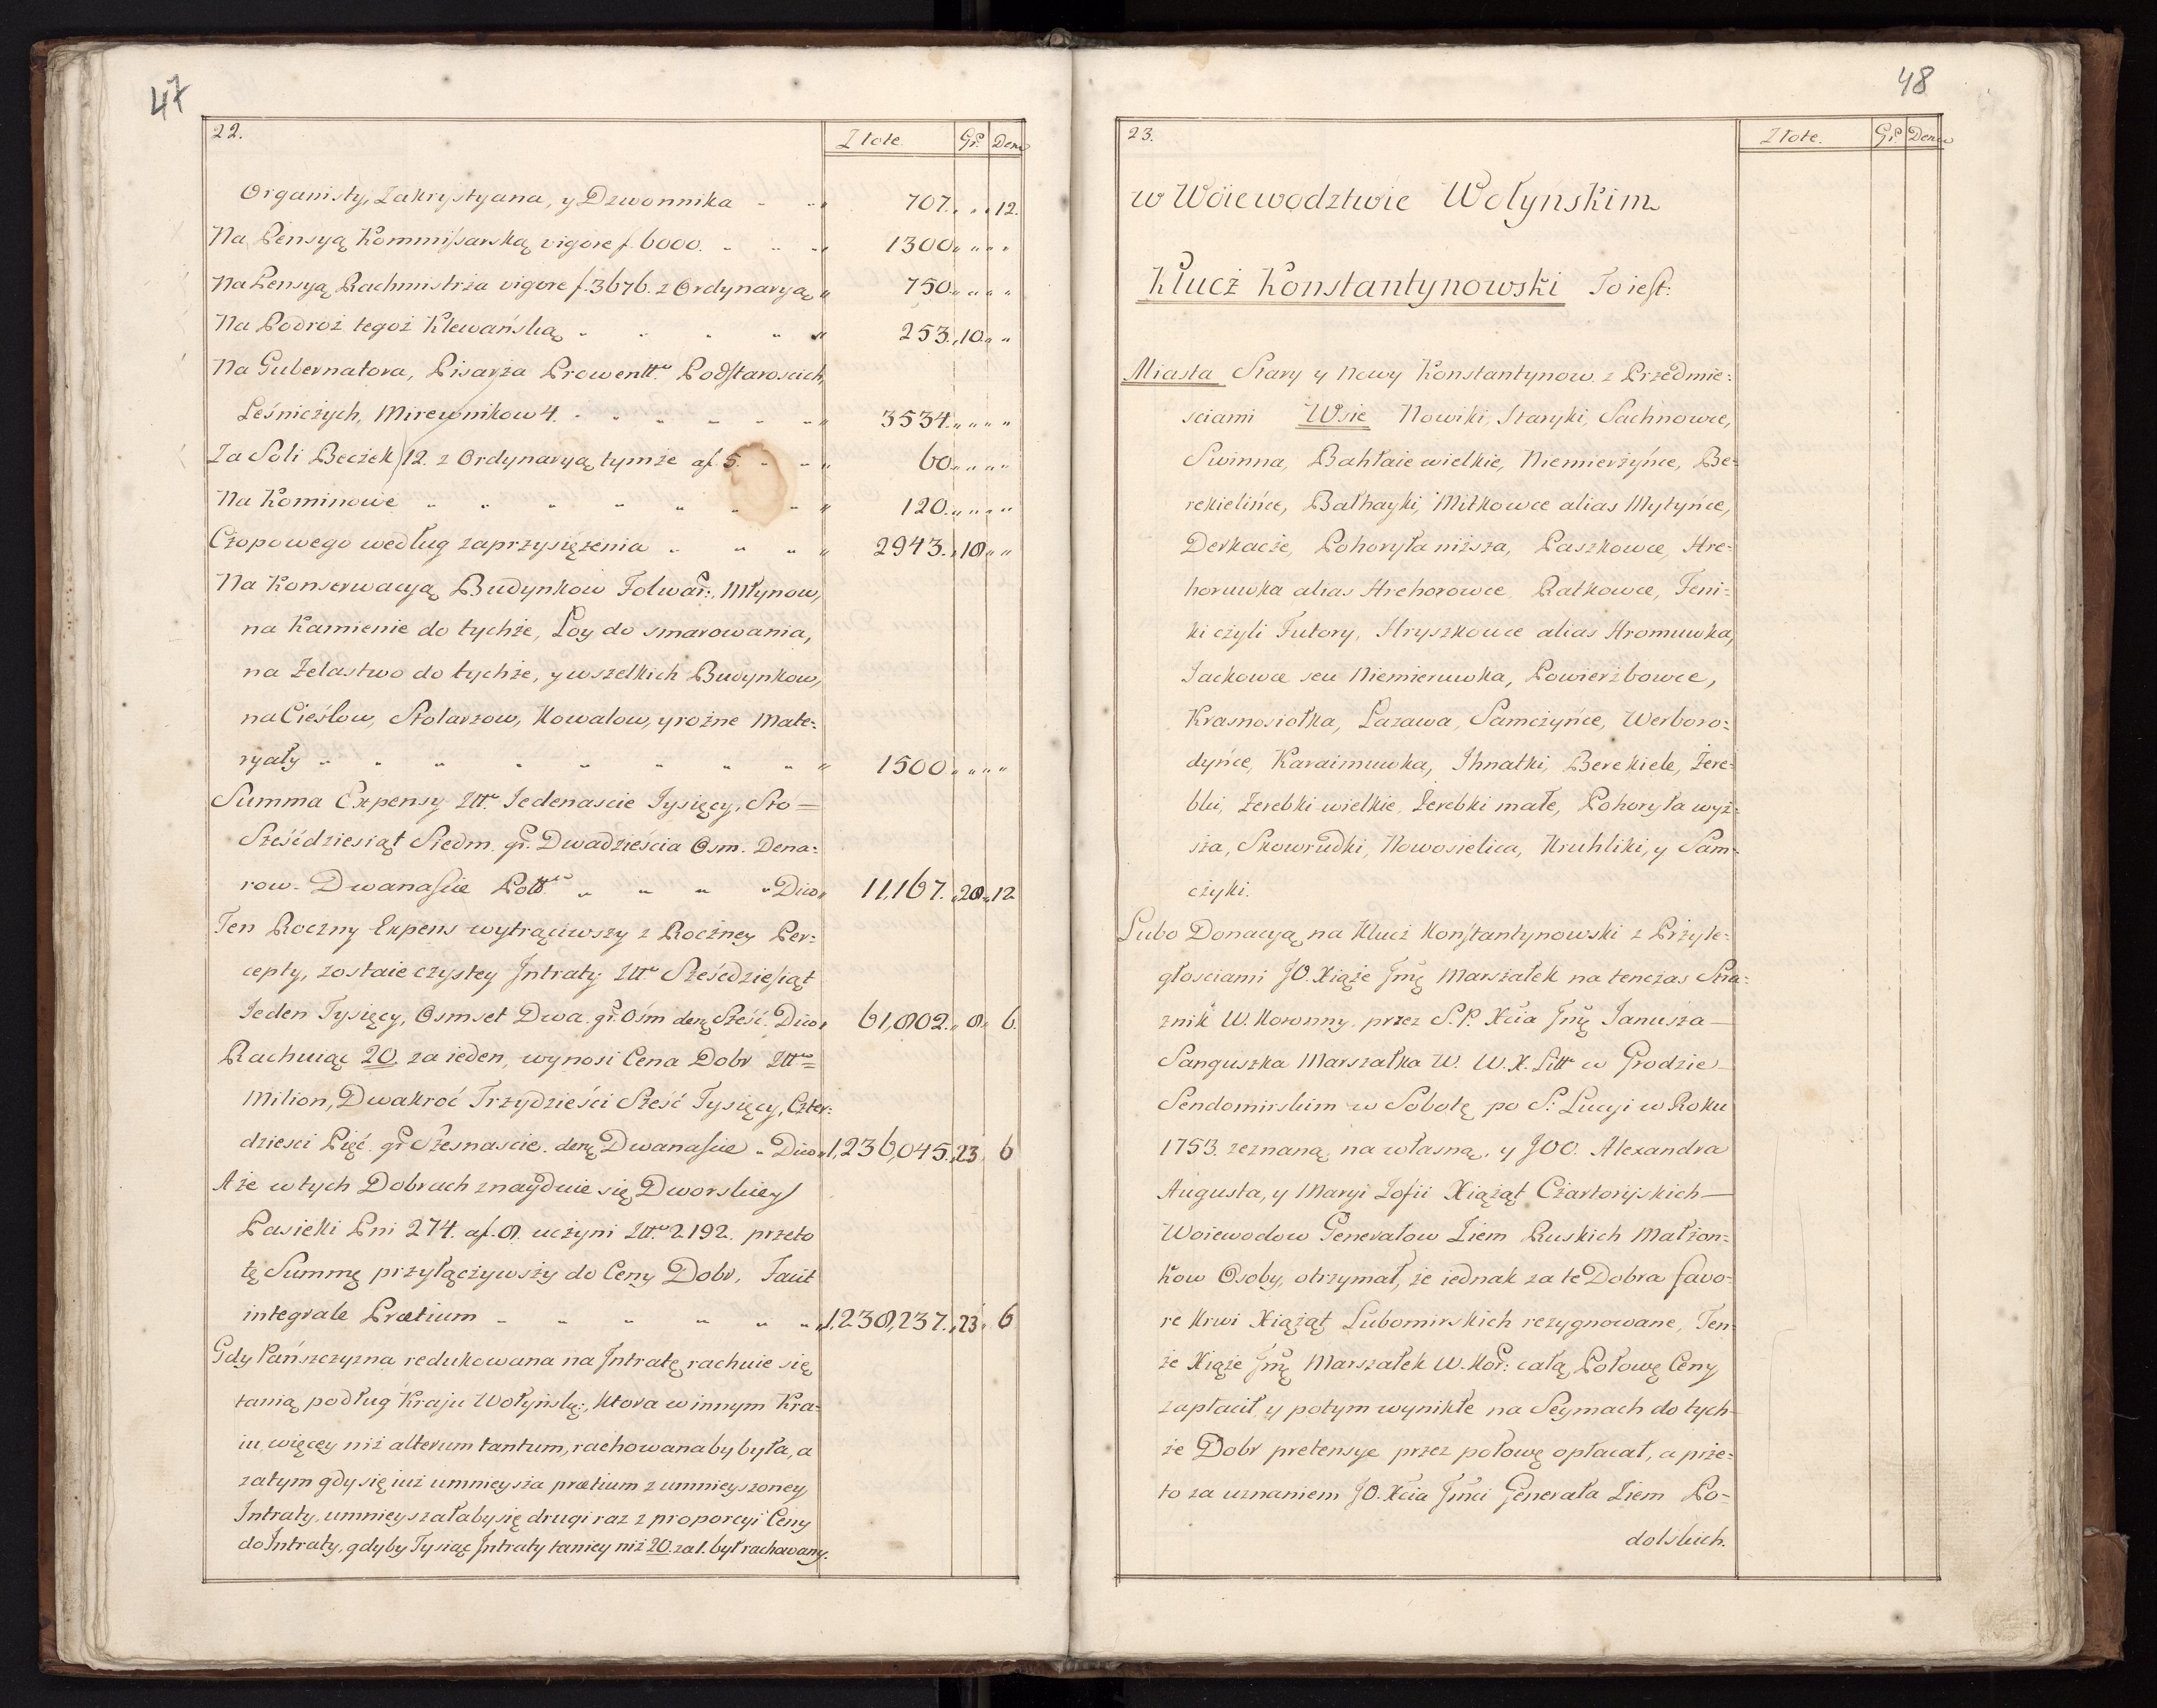 47
22.
Złote. Gr. Dena
Organisty, Zakrystyana, y Dzwonnika - - „ 707. „ „ 12.
Na Pensyą Kommissarską vigore f. 6000. - - „ 1300 „ „ „ „
Na Pensyą Rachmistrza vigore f. 3676. z Ordynaryą „ 750. „ „ „ „
Na Podroż tegoż Klewańską „ „ „ „ „ 253. „ 10 „ „
Na Gubernatora, Pisarża Prowentt. Podstaroscich,
Leśniczych, Mirewnikow 4. - - „ „ „ „ „ 3534. „ „ „ „
Za Soli Beczek 12. z Ordynaryą tymże af. 5. - - „ 60. „ „ „ „
Na Kominowe „ „ „ „ „ „ „ „ 120. „ „ „ „
Czopowego według zaprzysiężenia „ „ „ „ 2943. „ 18 „ „
Na Konserwacyą Budynkow Folwar:, Młynow,
na Kamienie do tychże, Łoy do smarowania,
na Żelastwo do tychże, y wszelkich Budynkow,
na Cieślow, Stolarzow, Kowalow, y rożne Mate:
ryały „ „ „ „ „ „ „ „ „ 1500 „ „ „ „
Summa Expensy Ztt. Iedenascie Tysięcy, Sto =
Sześćdziesiąt Siedm. gr. Dwadzieścia Osm. Dena:
row. Dwanaście Poltt „ „ „ „ Dico „ 11,167. „ 28 „ 12
Ten Roczny Expens wytrąciwszy z Roczney Per:
cepty, zostaie czystey Jntraty Ztt. Sześćdziesiąt
Ieden Tysięcy, Osmset Dwa. gr. Ośm denę Sześć. Dico „ 61,802. „ 8 „ 6.
Rachuiąc 20. za ieden, wynosi Cena Dobr Ztt =
Milion, Dwakroć Trzydzieści Sześć Tysięcy, Czter:
dziesci Pięć. gr. Szesnascie. denę Dwanaście „ Dico „ 1,236,045. „ 23 „ 6
A że w tych Dobrach znayduie się Dworskiey
Pasieki Pni 274. af. 8. uczyni Ztt. 2192. przeto
tę Summę przyłączywszy do Ceny Dobr, Facit
integrale Prætium - „ „ „ „ „ „ 1,238,237. „ 23 „ 6
Gdy Pańszczyzna redukowana na Jntratę rachuie się
tanią podług Kraju Wołyńskę:, ktora w innym Kra=
iu, więcęy niż alterum tantum, rachowana by była, a
zatym gdy się iuż umnieysza prætium z umnieyszoney
Jntraty, umnieyszałaby się drugi raz z proporcyi Ceny
do Jntraty, gdyby Tysiąc Jntraty taniey niż 20. zat. był rachowany.
48
23.
Złote. Gr. Dena
w Woiewodztwie Wołyńskim
Klucż Konstantynowski To iest:
Miasta Stary y Nowy Konstantynow z Przedmie:
sciami Wsie Nowiki, Staryki, Sachnowce,
Swinna, Bahłaie wielkie, Niemierżyńce, Be=
rekielińce, Bałhayki, Mitkowce alias Mytyńce,
Derkacże, Pohoryła niższa, Paszkowce, Hre=
horuwka alias Hrehorowce, Ratkowce, Feni=
ki cżyli Futory, Hryszkowce alias Hromuwka,
Iackowce seu Niemieruwka, Powierżbowce,
Krasnosiołka, Łazawa, Samcżyńce, Werboro=
dyńce, Karaimuwka, Ihnatki, Berekiele, Żere=
bki, Żerebki wielkie, Żerebki małe, Pohoryła wyż=
sża, Skowrudki, Nowosielica, Kruhliki, y Sam=
cżyki.
Lubo Donacyą na Klucż Konstantynowski z Przyle=
głosciami JO. Xiąże Jmę Marszałek na tenczas Stra=
żnik W. Koronny przez S.P. Xcia Jmę Ianusza -
Sanguszka Marszałka W. W. X. Litt. w Grodzie
Sendomirskim w Sobotę po S: Lucyi w Roku
1753. zeznaną na własną, y JOO. Alexandra
Augusta, y Maryi Zofii Xiążąt Czartoryskich -
Woiewodow Generałow Ziem Ruskich Małżon=
kow Osoby, otrzymał, że iednak za te Dobra favo=
re krwi Xiążąt Lubomirskich rezygnowane, Ten=
że Xiąże Jmę Marszałek W. Kor: całą Połowę Ceny
zapłacił y potym wynikłe na Seymach do tych=
że Dobr pretensye przez połowę opłacał, a prze=
to za uznaniem JO. Xcia Jmci Generała Ziem Po=
dolskich.